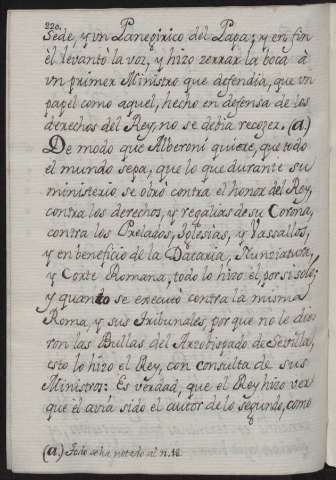 220.
Sede, y un Panegirico del Papa; y en fin
él levantó la voz, y hizo zerrar la boca à
un primer Ministro que defendia, que un
papel como aquel, hecho en defensa de los
derechos del Rey, no se debia recoger. (a.)
De modo que Alberoni quiere, que todo
el mundo sepa, que lo que durante su
ministerio se obró contra el honor del Rey,
contra los derechos, y regalias de su Corona,
contra los Prelados, Iglesias, y Vassallos,
y en beneficio de la Dataria, Nunziatura,
y Corte Romana, todo lo hizo él por si solo;
y quanto se executó contra la misma
Roma, y sus Tribunales, por que no le die-
ron las Bullas del Arzobispado de Sevilla,
esto lo hizo el Rey, con consulta de sus
Ministros: Es verdad, que el Rey hizo ver
que él avia sido el autor de lo segundo, como
(a.) Todo se ha notado al n. 18.